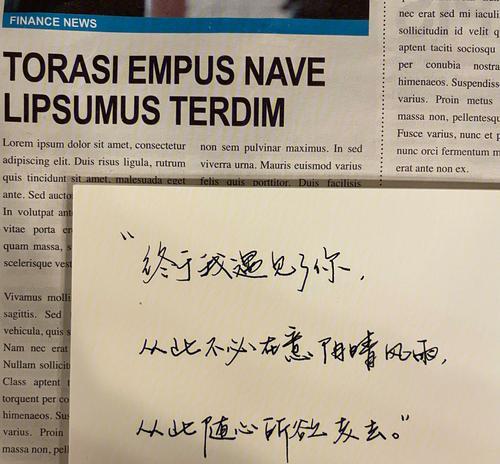 FINANCE NEWS
TORASI EMPUS NAVE
LIPSUMUS TERDIM
Lorem ipsum dolor sit amet, consectetur
adipiscing elit. Duis risus ligula, rutrum
quis tincidunt sit amet, malesuada eget
ante. Sed aucto
In volutpat ant
vitae porta er
quam massa, s
scelerisque vest
Vivamus molli
sagittis. Sed
vehicula, quis s
Nam nec erat
Nullam sollicit
Class aptent t
torquent per co
himenaeos. Sus
varius. Proin
massa non, pel
non sem pulvinar maximus. In sed
viverra urna. Mauris euismod varius
felis quis porttitor. Duis facilisis
nec erat sed mi iaculi
sollicitudin id velit q
aptent taciti sociosqu
per conubia nostra
himenaeos. Suspendiss
varius. Proin metus
massa non, pellentesqu
Fusce varius, nunc et p
nunc orci fermentum m
erat ante non ex.
“终于我遇见了你,
从此不必在意阴晴风雨,
从此随心所欲去。”